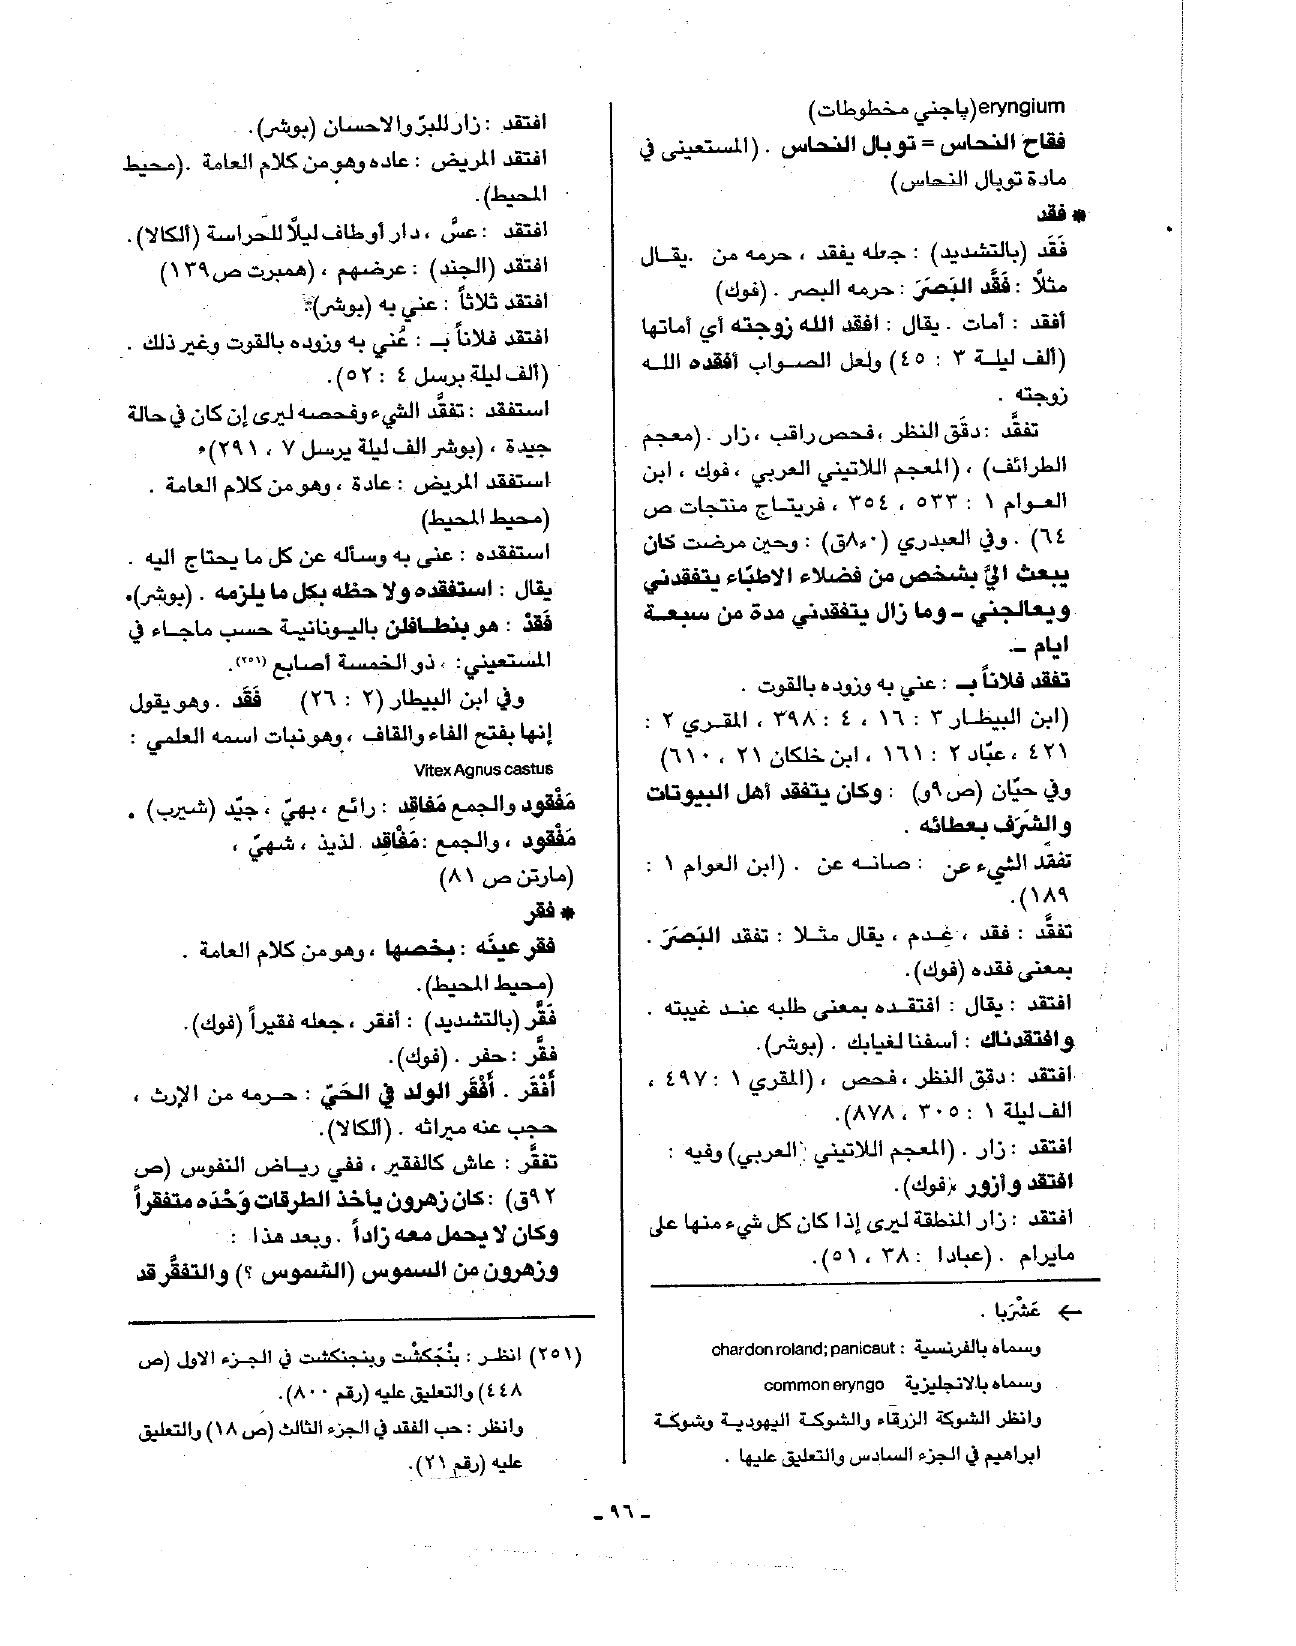 eryngium(پاجني مخطوطات)
فقاح النحاس = توبال النحاس . (المستعيني في
مادة توبال النحاس)
* فقد
فَقَّد (بالتشديد) : جعله يفقد ، حرمه من .يقال
مثلاً : فَقَّد البَصَرَ : حرمه البصر . (فوك)
أفقد : أمات . يقال : افقد الله زوجته أي أماتها
(ألف ليلة ٣ : ٤٥) ولعل الصواب أفقده الله
زوجته .
تفقَّد : دقّق النظر ، فحص راقب ، زار . (معجم
الطرائف) ، (المعجم اللاتيني العربي ، فوك ، ابن
العوام ١ : ٥٣٣ ، ٣٥٤ ، فريتاج منتجات ص
٦٤) . وفي العبدري (٨٠ق) : وحين مرضت كان
يبعث اليّ بشخص من فضلاء الاطبّاء يتفقدني
ويعالجني ــ وما زال يتفقدني مدة من سبعة
ايام ــ.
تفقد فلاناً بـ : عني به وزوده بالقوت .
(ابن البيطار ٣ : ١٦ ، ٤ : ٣٩٨ ، المقري ٢ :
٤٢١ ، عبّاد ٢ : ١٦١ ، ابن خلكان ٢١ ، ٦١٠)
وفي حيّان (ص٩و) : وكان يتفقد أهل البيوتات
والشَرَف بعطائه .
تفقد الشيء عن : صانه عن . (ابن العوام ١ :
١٨٩).
تفقَّد : فقد ، عدم ، يقال مثلا : تفقد البَصَرَ .
بمعنى فقده (فوك).
افتقد : يقال : افتقده بمعنى طلبه عند غيبته .
وافتقدناك : أسفنا لغيابك . (بوشر).
افتقد : دقق النظر ، فحص ، (المقري ١ : ٤٩٧ ،
الف ليلة ١ : ٣٠٥ ، ٨٧٨).
افتقد : زار . (المعجم اللاتيني العربي) وفيه :
افتقد وأزور (فوك).
افتقد : زار المنطقة ليرى إذا كان كل شيء منها على
مايرام . (عبادا : ٣٨ ، ٥١).
← عَشْرَبا .
وسماه بالفرنسية : chardon roland; panicaut
وسماه بالانجليزية common eryngo
وانظر الشوكة الزرقاء والشوكة اليهودية وشوكة
ابراهيم في الجزء السادس والتعليق عليها .
افتقد : زار للبرّ والاحسان (بوشر).
افتقد المريض : عاده وهو من كلام العامة .(محيط
المحيط).
افتقد : عسَّ ، دار أو طاف ليلاً للحراسة (ألكالا).
افتقد (الجند) : عرضهم ، (همبرت ص١٣٩)
افتقد ثلاثاً : عني به (بوشر).
افتقد فلاناً بـ : عُني به وزوده بالقوت وغير ذلك .
(ألف ليلة برسل ٤ : ٥٢).
استفقد : تفقَّد الشيء وفحصه ليرى إن كان في حالة
جيدة ، (بوشر الف ليلة برسل ٧ ، ٢٩١).
استفقد المريض : عادة ، وهو من كلام العامة .
(محيط المحيط)
استفقده : عنى به وسأله عن كل ما يحتاج اليه .
يقال : استفقده ولاحظه بكل ما يلزمه . (بوشر).
فَقَدْ : هو بنطافلن باليونانية حسب ماجاء في
المستعيني: ، ذو الخمسة أصابع (٢٥١).
وفي ابن البيطار (٢ : ٢٦) فَقَد . وهو يقول
إنها بفتح الفاء والقاف ، وهو نبات اسمه العلمي :
Vitex Agnus castus
مَفْقُود والجمع مَفاقِد : رائع ، بهيّ ، جيّد (شيرب) .
مَفْقُود ، والجمع : مَفْاقِد لذيذ ، شهيّ ،
(مارتن ص ٨١)
* فقر
فقر عينَه : بخصها ، وهو من كلام العامة .
(محيط المحيط).
فَقَّر (بالتشديد) : أفقر ، جعله فقيراً (فوك).
فقَّر : حفر . (فوك).
أَفْقَر . أَفْقَر الولد في الحَيّ : حرمه من الإرث ،
حجب عنه ميراثه . (ألكالا).
تفقَّر : عاش كالفقير ، ففي رياض النفوس (ص
٩٢ق) : كان زهرون يأخذ الطرقات وَحْدَه متفقراً
وكان لا يحمل معه زاداً . وبعد هذا :
وزهرون من السموس (الشموس ؟) والتفقُّر قد
(٢٥١) انظر : بنْجَكشْت وبنجنكشت في الجزء الاول (ص
٤٤٨) والتعليق عليه (رقم ٨٠٠).
وانظر : حب الفقد في الجزء الثالث (ص ١٨) والتعليق
عليه (رقم ٢١).
ـ ٩٦ ـ